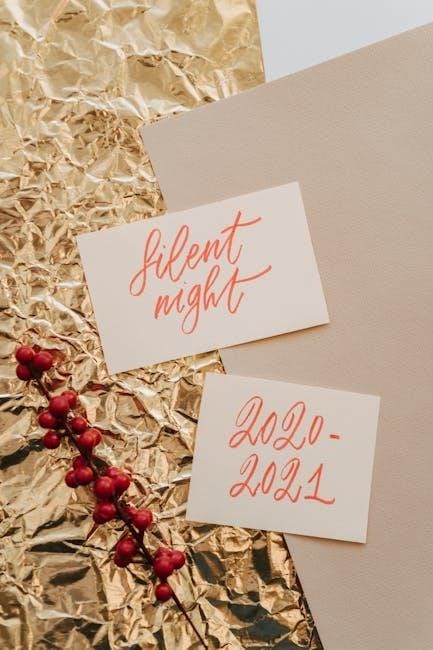 Silent
night
2020-
2021